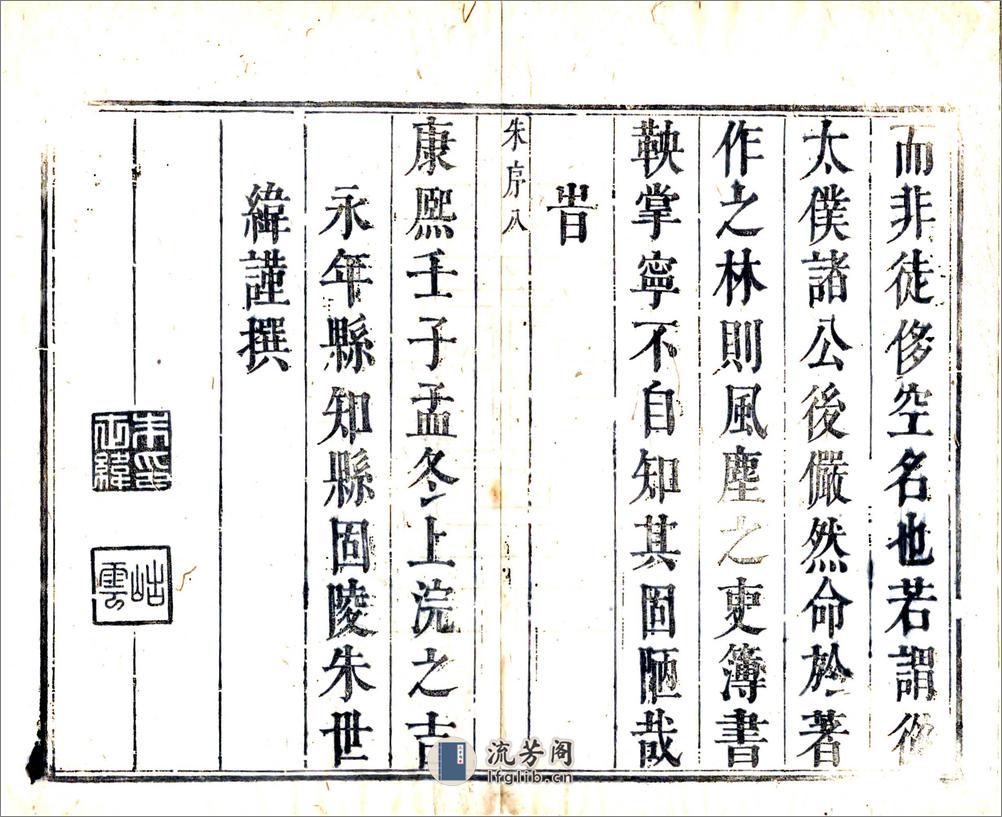 而非徒侈空名也若謂從
太僕諸公後儼然命於著
作之林則風塵之吏簿書
鞅掌寧不自知其固陋哉
旹
朱序八
康熙壬子孟冬上浣之吉
永年縣知縣固陵朱世
緯謹撰
朱印世緯
岵雲
流芳阁
lfglib.cn